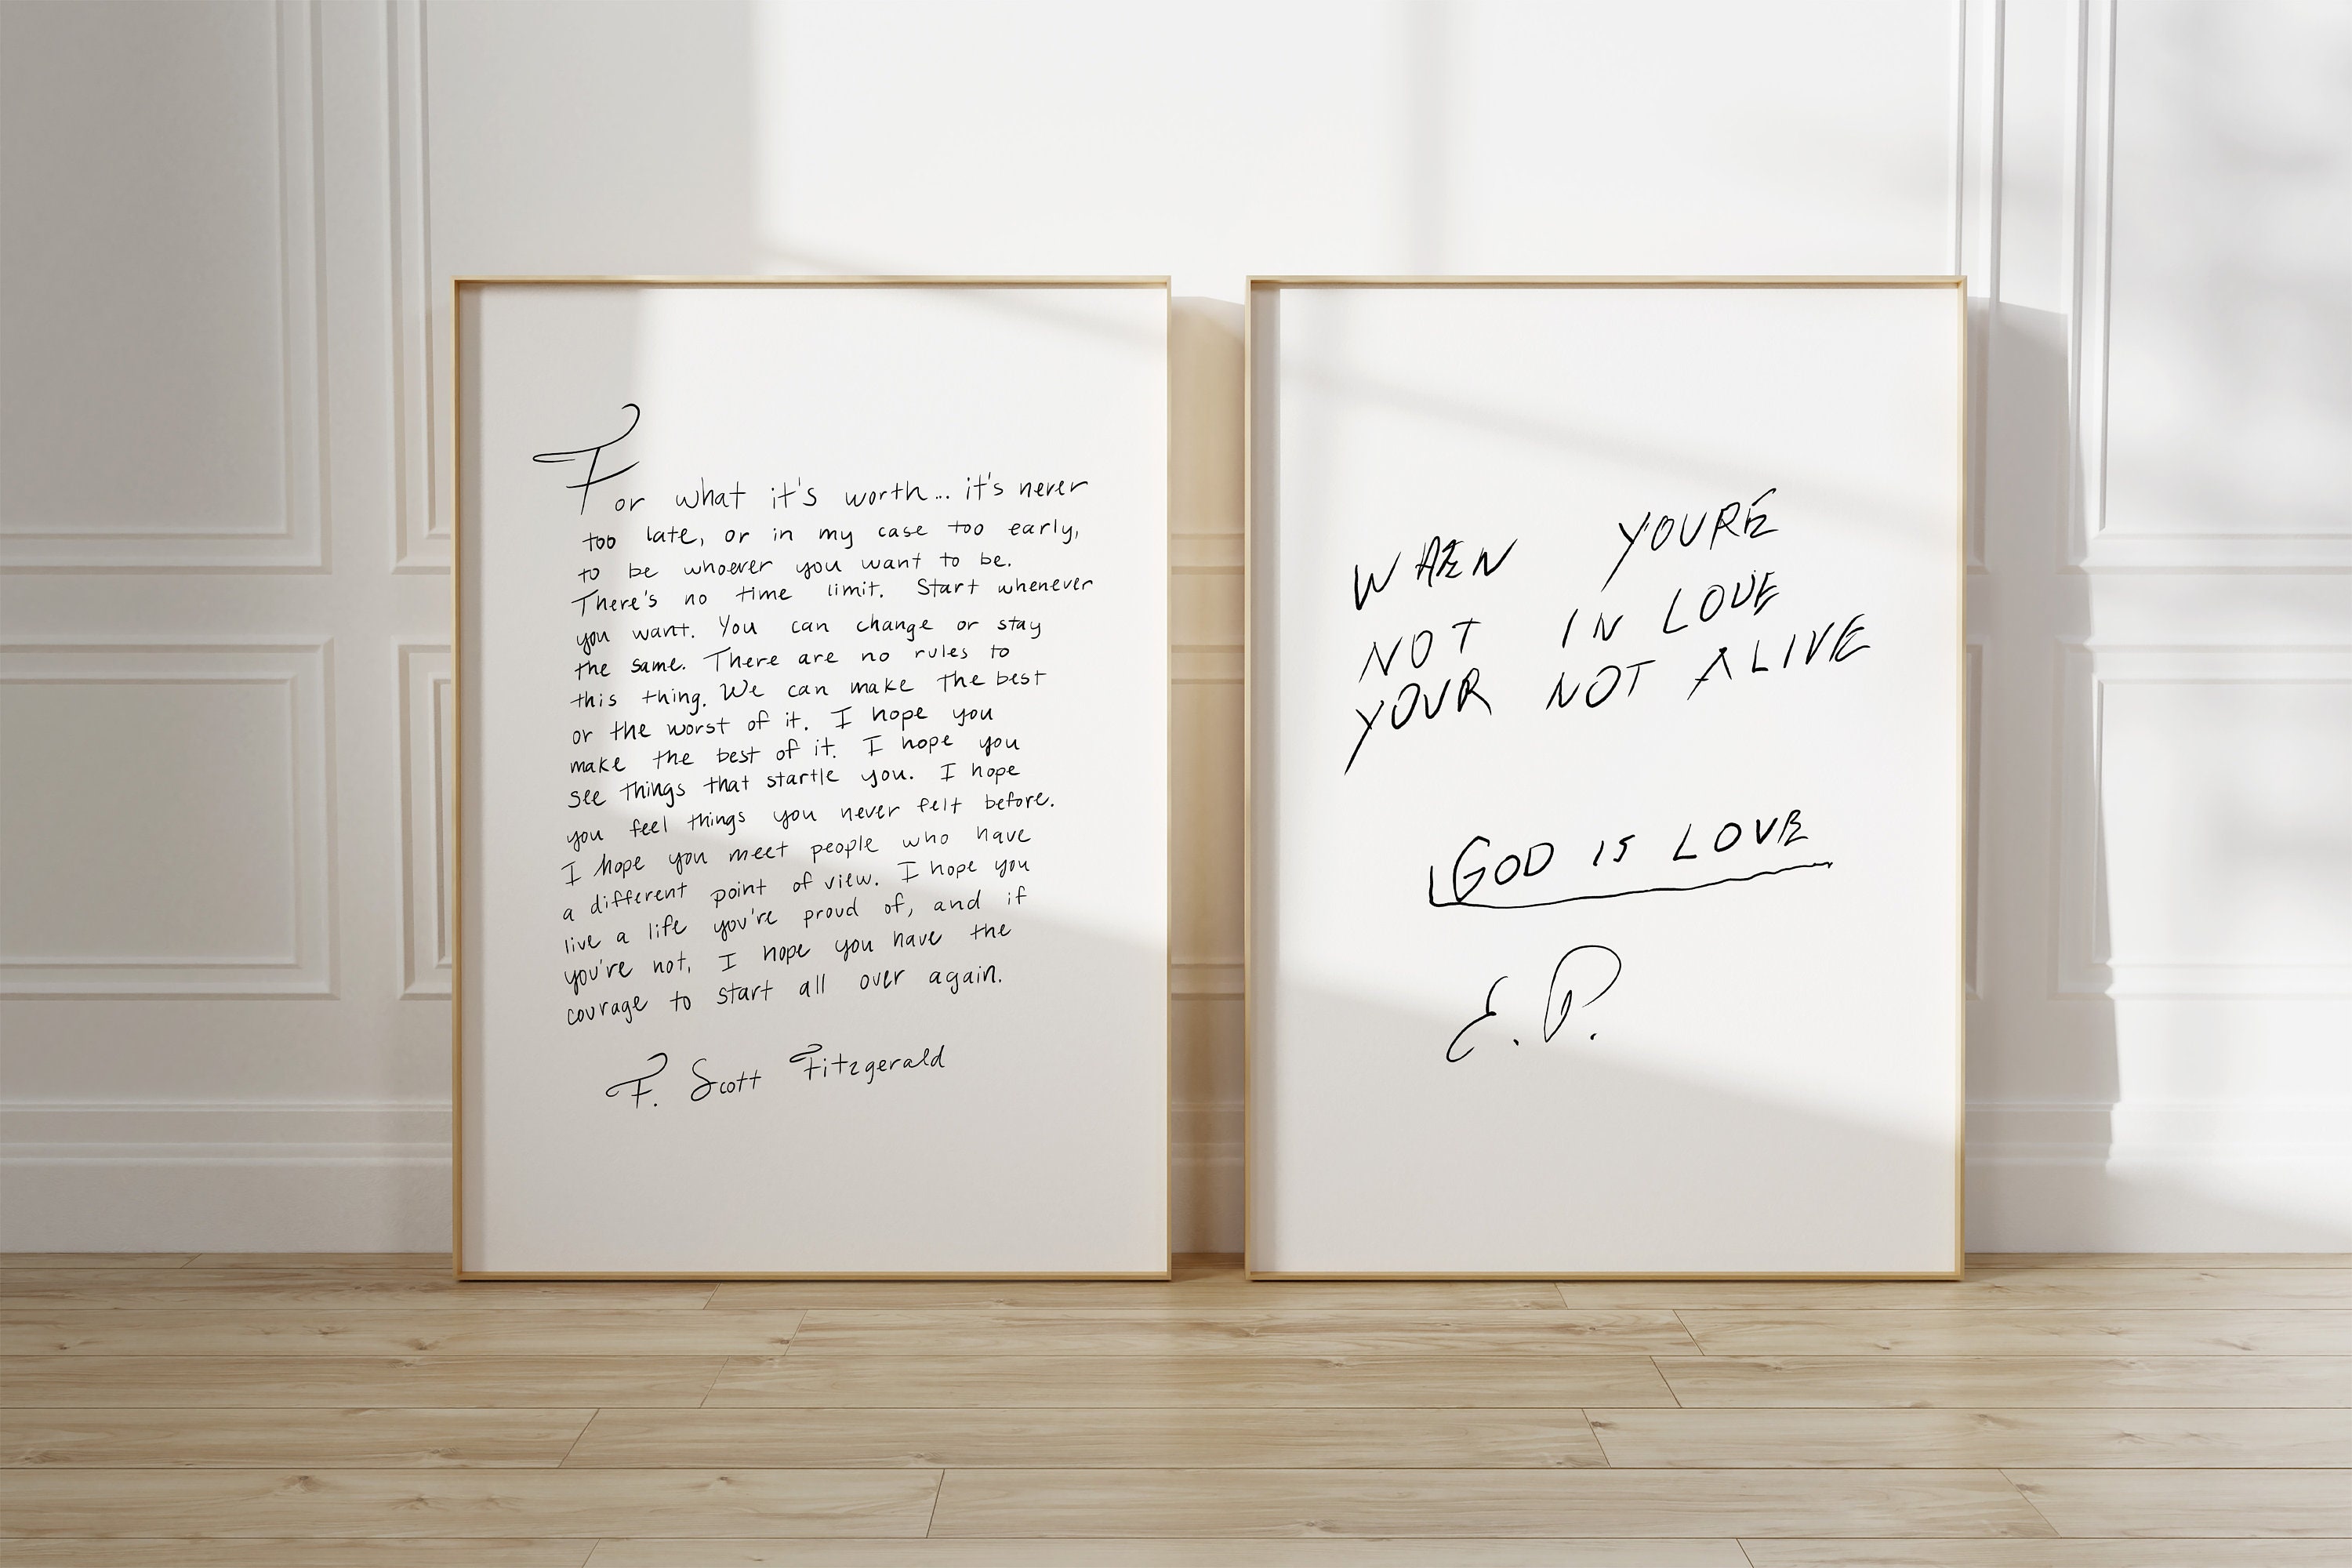 For what it's worth... it's never
too late, or in my case too early,
to be whoever you want to be.
There's no time limit. Start whenever
you want. You can change or stay
the same. There are no rules to
this thing. We can make the best
or the worst of it. I hope you
make the best of it. I hope you
see things that startle you. I hope
you feel things you never felt before.
I hope you meet people who have
a different point of view. I hope you
live a life you're proud of, and if
you're not, I hope you have the
courage to start all over again.
F. Scott Fitzgerald
WHEN YOURE
NOT IN LOVE
YOUR NOT ALIVE
GOD IS LOVE
E.P.